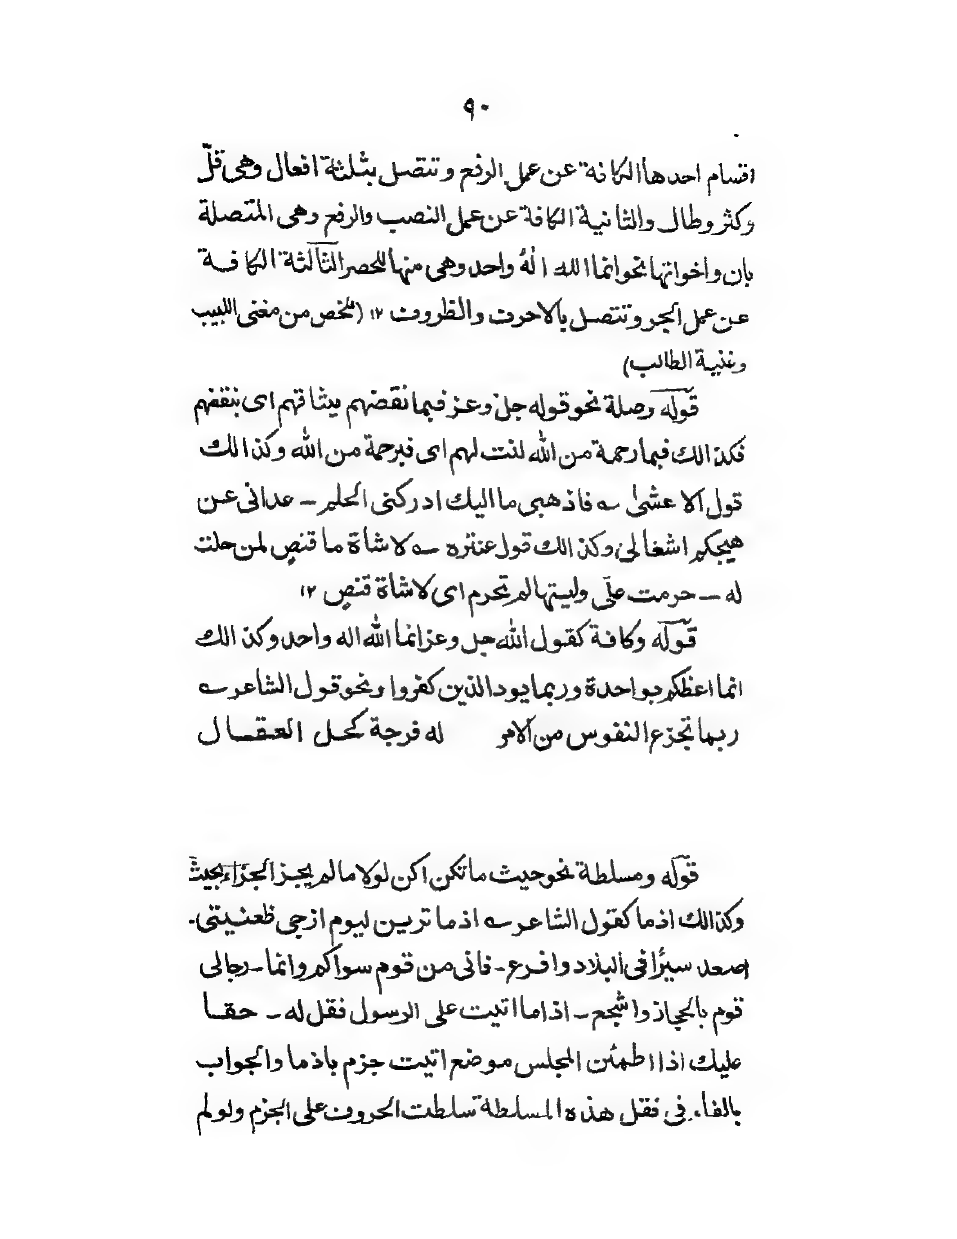 ٩٠
اقسام احدها الكافة عن عمل الرفع وتتصل بثلثة افعال وهى قلّ
وكثر وطال والثانية الكافة عن عمل النصب والرفع وهى المتصلة
بان واخواتها نحو انما الله الٰهُ واحد وهى منها للحصر الثالثة الكافة
عن عمل الجر وتتصل بالاحرف والظروف ١٢ (ملخص من مغنى اللبيب
وغنية الطالب)
قوله وصلة نحو قوله جل وعز فبما نقضهم ميثاقهم اى بنقضهم
فكذالك فبما رحمة من الله لنت لهم اى فبرحمة من الله وكذالك
قول الاعشىٰ ؎ فاذهبى ما اليك ادركنى الحلم – عدانى عن
هيجكم اشغالى وكذالك قول عنتره ؎ لا شاة ما قنصٍ لمن حلت
له – حرمت علّى وليتها لم تحرم اى لا شاة قنصٍ ١٢
قوله وكافة كقول الله جل وعز انما الله اله واحد وكذالك
انما اعظكم بواحدة وربما يود الذين كفروا ونحو قول الشاعر ؎
ربما تجزع النفوس من الامر له فرجة كحل العقال
قوله ومسلطة نحو حيث ما تكن اكن لولا ما لم يجز الجزاء بحيث
وكذالك اذما كقول الشاعر ؎ اذما ترين ليوم ازجى ظعنيتى –
اصعد سيرًا فى البلاد وافرع – فانى من قوم سواكم وانما – رجالى
قوم بالحجاز واشجع – اذاما اتيت على الرسول فقل له – حقا
عليك اذا اطمئن المجلس موضع اتيت جزم باذما والجواب
بالفاء فى فقل هذه المسلطة سلطت الحروف على الجزم ولو لم